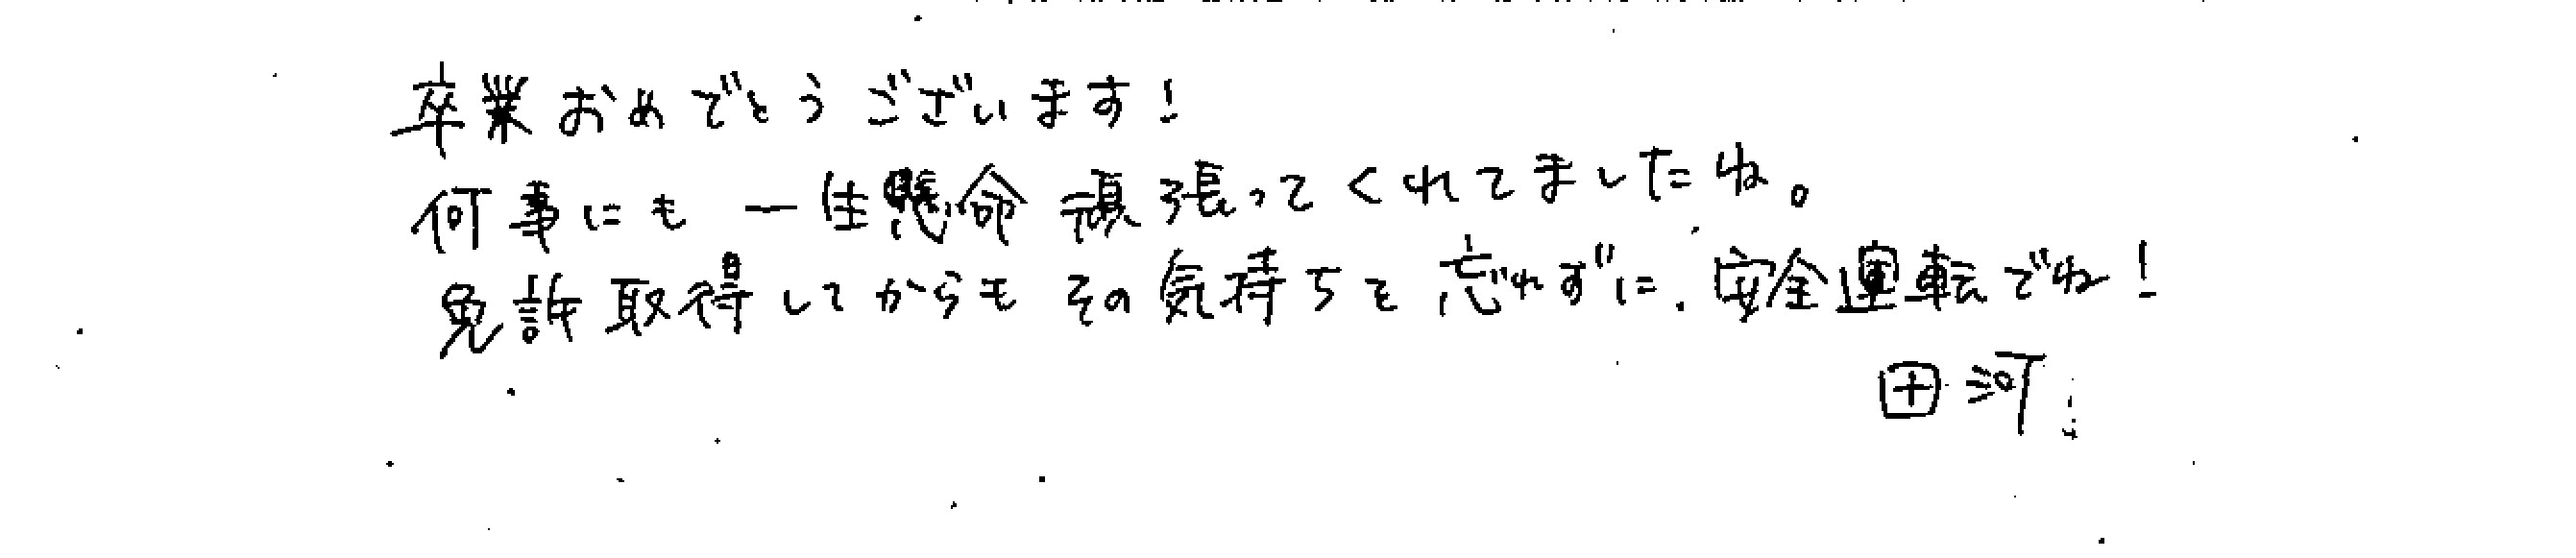 卒業おめでとうございます!
何事にも一生懸命頑張ってくれてましたね。
免許取得してからもその気持ちを忘れずに、安全運転でね!
田河